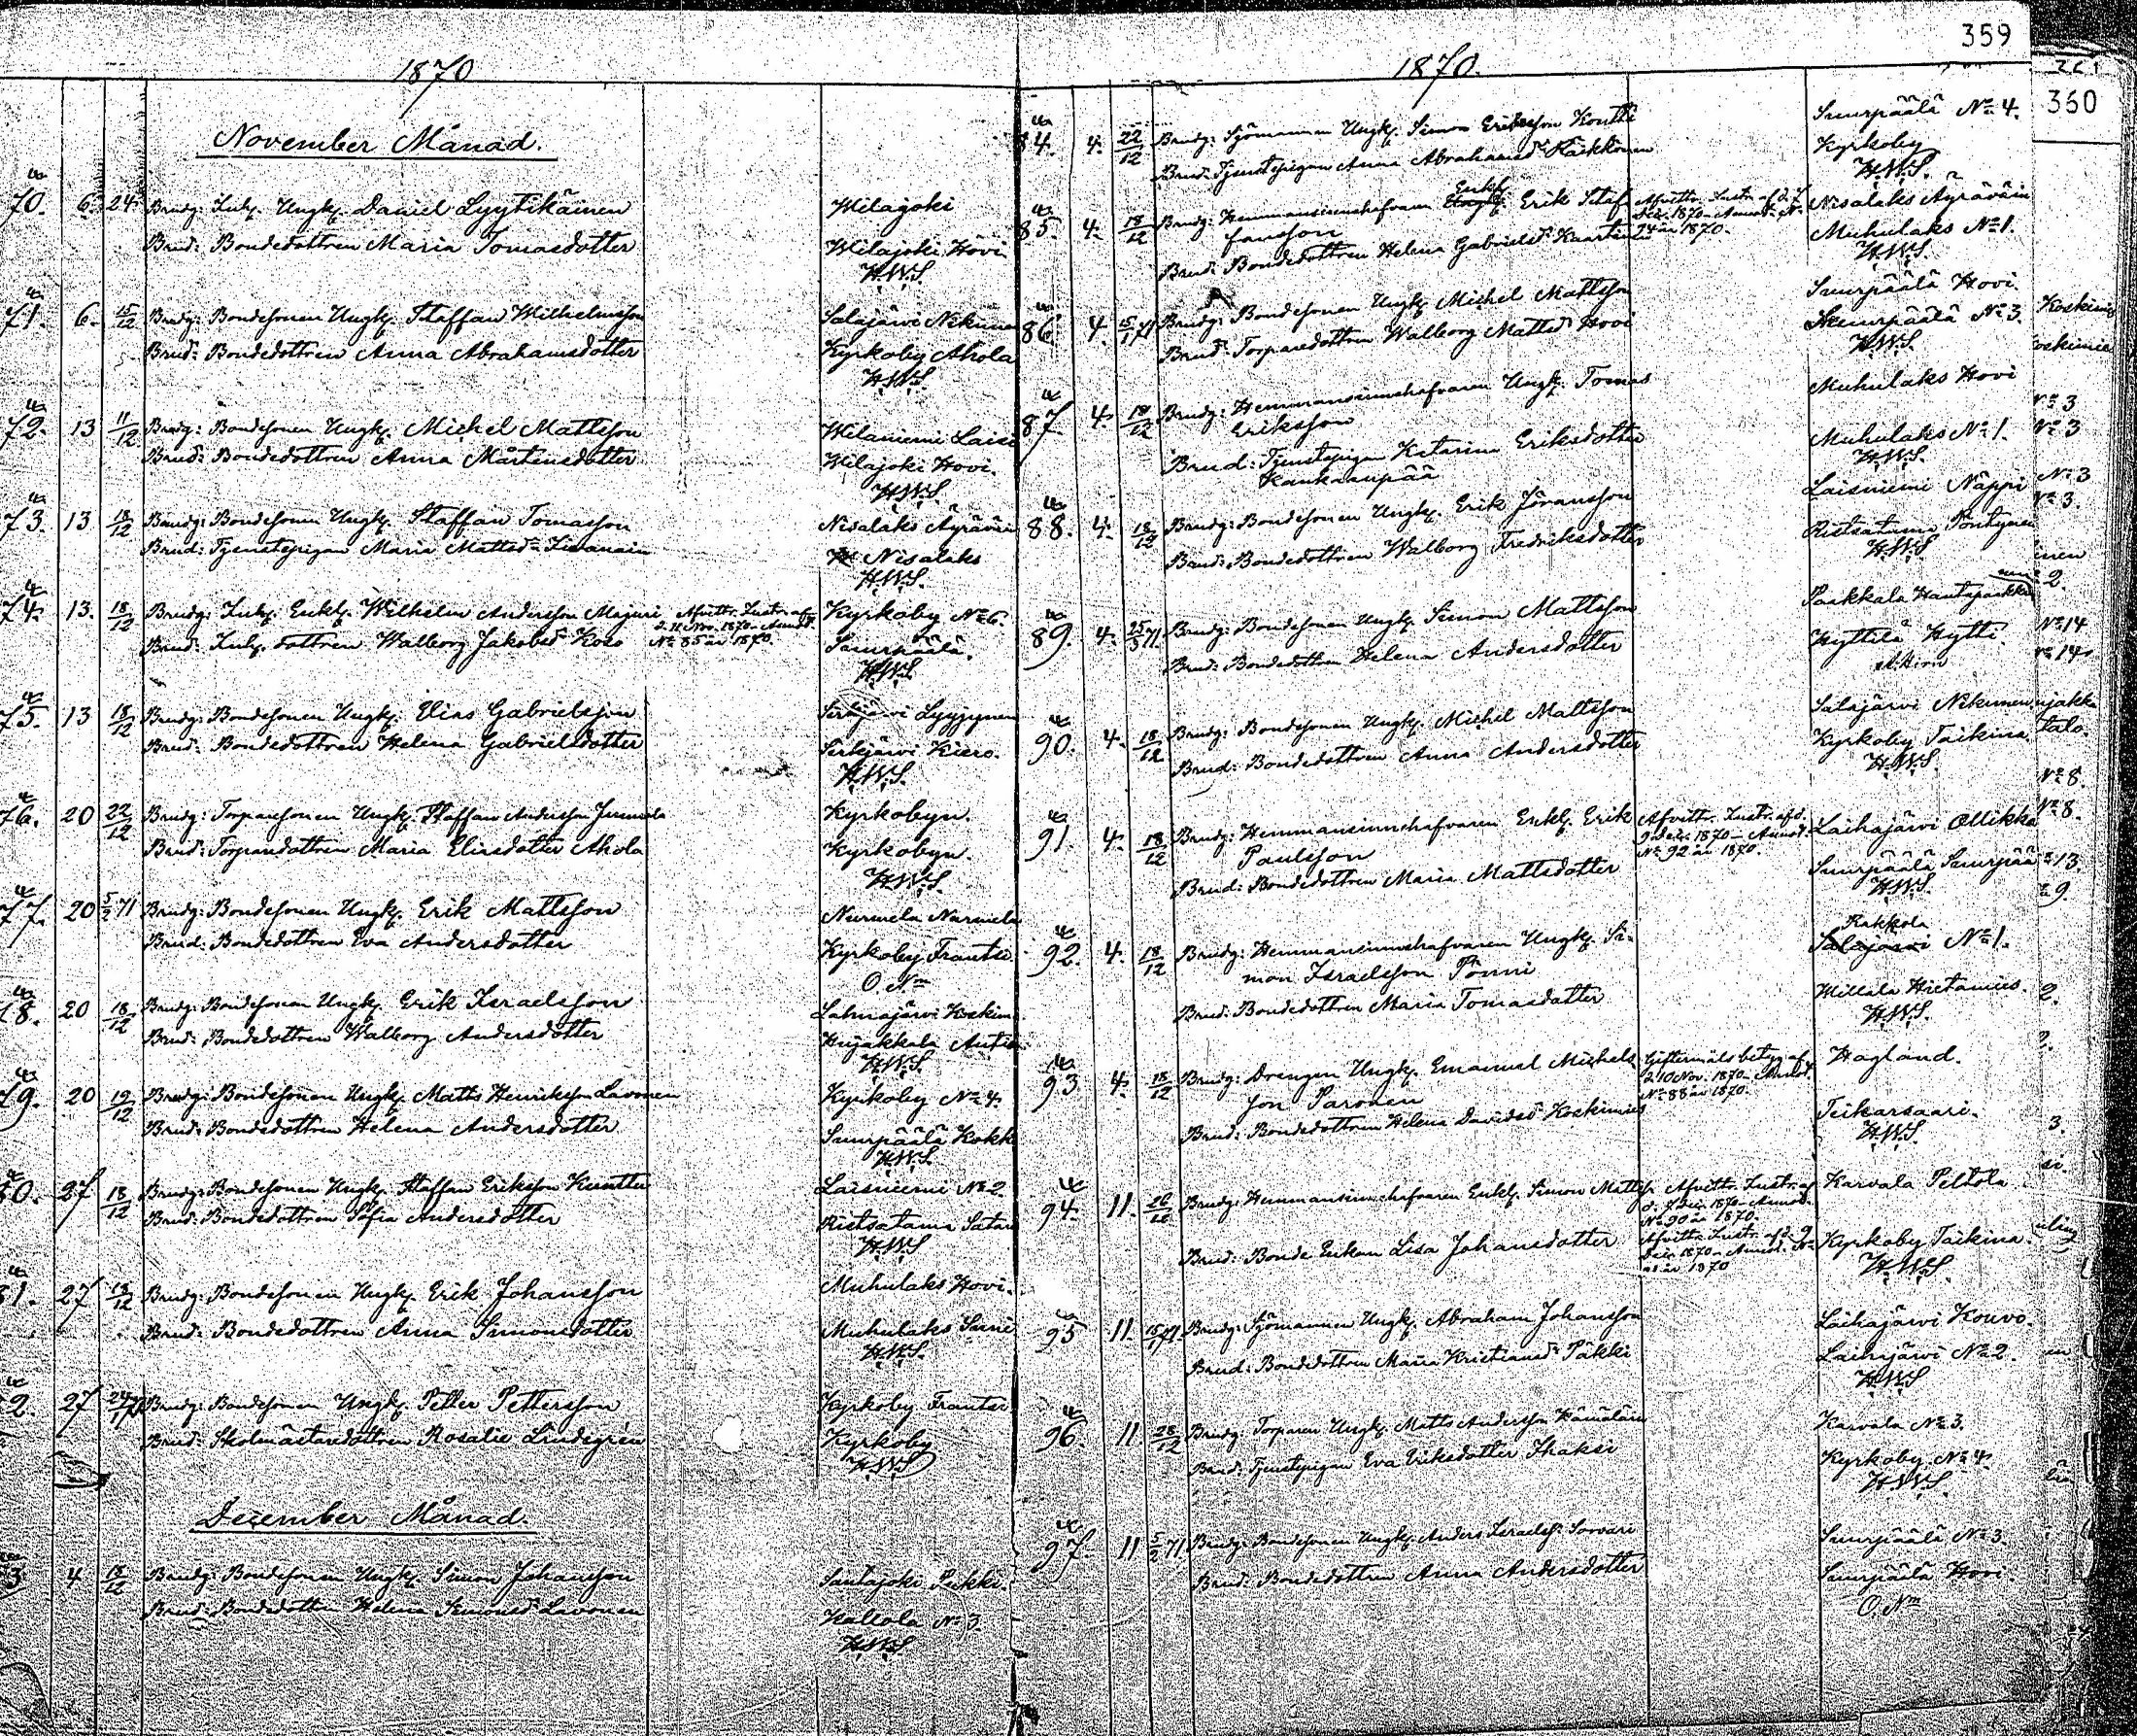 359
360
1870
November Månad.
70. 6. 24. Brudg: Inh. Ungk. Daniel Lyytikäinen Wilajoki
Brud: Bondedottren Maria Tomasdotter Wilajoki Hovi
H.W.S.
71. 6. 15/12 Brudg: Bondesonen Ungk. Staffan Wilhelmsson Salajärvi Nikunen
Brud: Bondedottren Anna Abrahamsdotter Kyrkoby Ahola
H.W.S.
72. 13 11/12 Brudg: Bondesonen Ungk. Michel Mattsson Wilaniemi Laisi
Brud: Bondedottren Anna Mårtensdotter Wilajoki Hovi.
H.W.S.
73. 13 18/12 Brudg: Bondesonen Ungk. Staffan Tomasson Nisalaks Äyräväin
Brud: Tjenstepigan Maria Mattsdr Nisalaks
H.W.S.
74. 13. 18/12 Brudg: Inh. Enkl. Wilhelm Andersson Majuri Afvittr. Instr. af Kyrkoby No 6.
d. 21 Nov. 1870 - Annot.
Brud: Inh. dottren Walborg Jakobsd. Koso No 85 år 1870. Suurpäälä.
H.W.S.
75. 13 18/12 Brudg: Bondesonen Ungk. Elias Gabrielsson Serkjärvi Lyyjynen
Brud: Bondedottren Helena Gabrielsdotter Serkjärvi Kiero.
H.W.S.
76. 20 22/12 Brudg: Torparesonen Ungk. Staffan Andersson Kyrkobyn.
Brud: Torparedottren Maria Eliasdotter Ahola Kyrkobyn.
H.W.S.
77. 20 5/2 71 Brudg: Bondesonen Ungk. Erik Mattsson Nurmela Nurmela
Brud: Bondedottren Eva Andersdotter Kyrkoby Frantsi.
O. Nm
78. 20 18/12 Brudg: Bondesonen Ungk. Erik Israelsson Lahnajärvi Koskim.
Brud: Bondedottren Walborg Andersdotter Hujakkala Antti
H.W.S.
79. 20 19/12 Brudg: Bondesonen Ungk. Matts Henriksson Lavonen Kyrkoby No 4.
Brud: Bondedottren Helena Andersdotter Suurpäälä Kokk
H.W.S.
80. 27 18/12 Brudg: Bondesonen Ungk. Staffan Eriksson Kunttu Laisniemi No 2.
Brud: Bondedottren Sofia Andersdotter Ristsatama Satam
H.W.S
81. 27 18/12 Brudg: Bondesonen Ungk. Erik Johansson Muhulaks Hovi.
Brud: Bondedottren Anna Simonsdotter Muhulaks
H.W.S.
2. 27 24/1 71 Brudg: Bondesonen Ungk. Petter Pettersson Kyrkoby Frantsi
Brud: Skolmästaredottren Rosalie Lindegrén Kyrkoby
H.W.S
December Månad.
3 4 18/12 Brudg: Bondesonen Ungk. Simon Johansson Santajoki Pukki.
Brud: Bondedottren Helena Simonsd. Lavonen Kallola No 3.
H.W.S
1870.
84. 4. 22/12 Brudg: Sjömannen Ungk. Simon Eriksson Kontti Suurpäälä No 4.
Brud: Tjenstepigan Anna Abrahamsdr Räikkönen Kyrkoby
H.W.S.
85. 4. 18/12 Brudg: Hemmansinnehafvaren Enkl. Erik Staf- Afvittr. Instr. af d. 7 Nisalaks Äyräväin
fansson Dec. 1870 - Annot. No
Brud: Bondedottren Helena Gabrielsd. Kaartinen 94 år 1870. Muhulaks No 1.
H.W.S.
86. 4. 15/1 71 Brudg: Bondesonen Ungk. Michel Mattsson Suurpäälä Hovi.
Brud: Torparedottren Walborg Mattsd. Hovi Suurpäälä No 3.
H.W.S.
87. 4. 18/12 Brudg: Hemmansinnehafvaren Ungk. Tomas Muhulaks Hovi
Eriksson
Brud: Tjenstepigan Katarina Eriksdotter Muhulaks No 1.
Kankaanpää H.W.S.
88. 4. 18/12 Brudg: Bondesonen Ungk. Erik Göransson Laisniemi Näppi
Brud: Bondedottren Walborg Fredriksdotter Ristsatama Pöntynen
H.W.S
89. 4. 25/3 71. Brudg: Bondesonen Ungk. Simon Mattsson Paakkala Hantapaikka
Brud: Bondedottren Helena Andersdotter Hyttilä Hytti.
90. 4. 18/12 Brudg: Bondesonen Ungk. Michel Mattsson Salajärvi Nikunen
Brud: Bondedottren Anna Andersdotter Kyrkoby Taikina.
H.W.S.
91. 4. 18/12 Brudg: Hemmansinnehafvaren Enkl. Erik Afvittr. Instr. af d. Laihajärvi Ollikka
Paulsson 9 Dec. 1870 - Annot.
No 92 år 1870.
Brud: Bondedottren Maria Mattsdotter Suurpäälä Suurpää
H.W.S.
92. 4. 18/12 Brudg: Hemmansinnehafvaren Ungk. Si- Rakkola Salajärvi No 1.
mon Israelsson Pönni
Brud: Bondedottren Maria Tomasdotter Willala Hietamies.
H.W.S.
93 4. 18/12 Brudg: Drengen Ungk. Emanuel Michels- Giftermåls betyg af Hogland.
son Paronen d. 10 Nov. 1870 - Annot.
No 88 år 1870.
Brud: Bondedottren Helena Davidsd. Koskimies Teikarsaari.
H.W.S.
94. 11. 26/12 Brudg: Hemmansinnehafvaren Enkl. Simon Mattss. Afvittr. Instr. af Karvala Peltola
Dec. 1870 - Annot.
No 90 år 1870.
Brud: Bonde Enkan Lisa Johansdotter Afvittr. Instr. af d. 9 Kyrkoby Taikina.
Dec. 1870 - Annot. No
år 1870 H.W.S.
95 11. 15/1 71 Brudg: Sjömannen Ungk. Abraham Johansson Laihajärvi Kouvo.
Brud: Bondedottren Maria Kristiansdr Päkki Laihajärvi No 2.
H.W.S
96. 11 28/12 Brudg: Torparen Ungk. Matts Andersson Hämäläin Karvala No 3.
Brud: Tjenstepigan Eva Eriksdotter Ihaksi Kyrkoby No 4.
H.W.S.
97. 11 5/2 71. Brudg: Bondesonen Ungk. Anders Israelss. Sorvari Suurpäälä No 3.
Brud: Bondedottren Anna Andersdotter Suurpäälä Hovi.
O. Nm